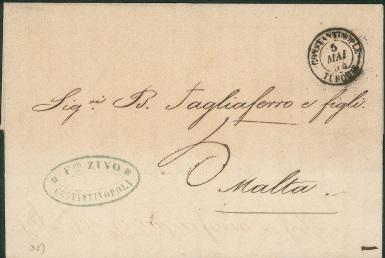 CONSTANTINOPLE
5
MAI
54
TURQUIE
Sigri B. Tagliaferro e figli.
5
Malta.
Fco ZINO
COSTANTINOPOLI
32)